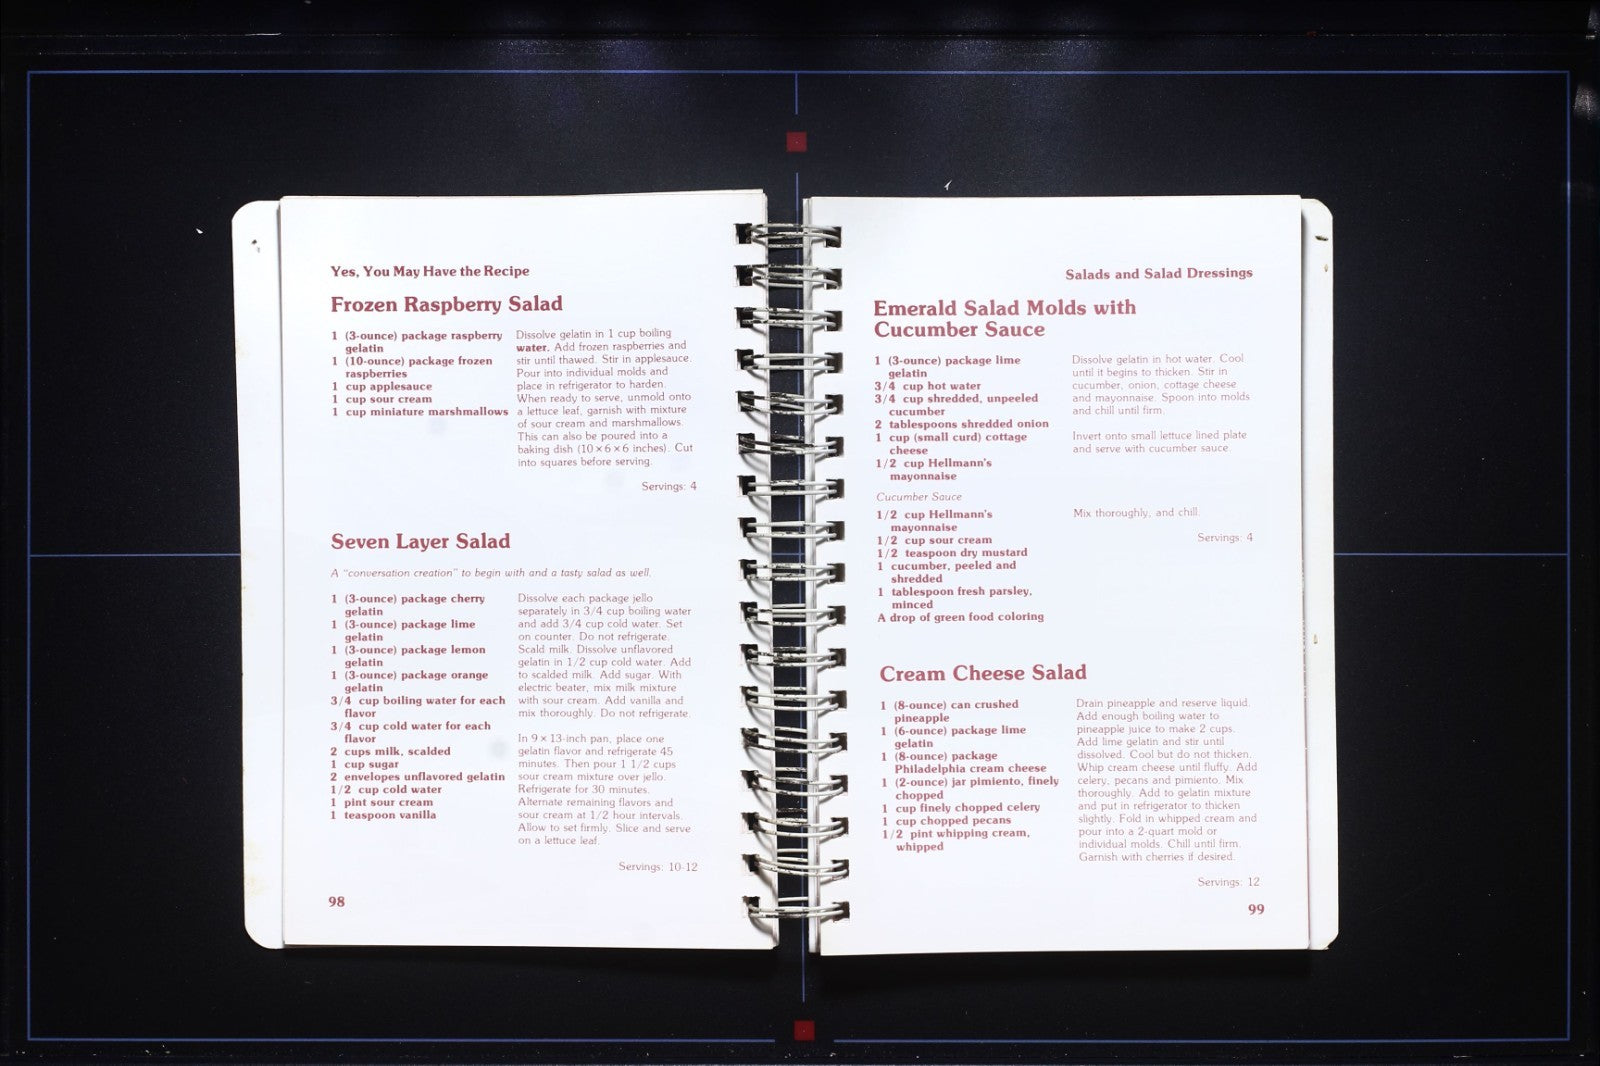 Yes, You May Have the Recipe
Frozen Raspberry Salad
1 (3-ounce) package raspberry
gelatin
1 (10-ounce) package frozen
raspberries
1 cup applesauce
1 cup sour cream
1 cup miniature marshmallows
Dissolve gelatin in 1 cup boiling
water. Add frozen raspberries and
stir until thawed. Stir in applesauce.
Pour into individual molds and
place in refrigerator to harden.
When ready to serve, unmold onto
a lettuce leaf, garnish with mixture
of sour cream and marshmallows.
This can also be poured into a
baking dish (10 × 6 × 6 inches). Cut
into squares before serving.
Servings: 4
Seven Layer Salad
A "conversation creation" to begin with and a tasty salad as well.
1 (3-ounce) package cherry
gelatin
1 (3-ounce) package lime
gelatin
1 (3-ounce) package lemon
gelatin
1 (3-ounce) package orange
gelatin
3/4 cup boiling water for each
flavor
3/4 cup cold water for each
flavor
2 cups milk, scalded
1 cup sugar
2 envelopes unflavored gelatin
1/2 cup cold water
1 pint sour cream
1 teaspoon vanilla
Dissolve each package jello
separately in 3/4 cup boiling water
and add 3/4 cup cold water. Set
on counter. Do not refrigerate.
Scald milk. Dissolve unflavored
gelatin in 1/2 cup cold water. Add
to scalded milk. Add sugar. With
electric beater, mix milk mixture
with sour cream. Add vanilla and
mix thoroughly. Do not refrigerate.
In 9 × 13-inch pan, place one
gelatin flavor and refrigerate 45
minutes. Then pour 1 1/2 cups
sour cream mixture over jello.
Refrigerate for 30 minutes.
Alternate remaining flavors and
sour cream at 1/2 hour intervals.
Allow to set firmly. Slice and serve
on a lettuce leaf.
Servings: 10-12
98
Salads and Salad Dressings
Emerald Salad Molds with
Cucumber Sauce
1 (3-ounce) package lime
gelatin
3/4 cup hot water
3/4 cup shredded, unpeeled
cucumber
2 tablespoons shredded onion
1 cup (small curd) cottage
cheese
1/2 cup Hellmann's
mayonnaise
Dissolve gelatin in hot water. Cool
until it begins to thicken. Stir in
cucumber, onion, cottage cheese
and mayonnaise. Spoon into molds
and chill until firm.
Invert onto small lettuce lined plate
and serve with cucumber sauce.
Cucumber Sauce
1/2 cup Hellmann's
mayonnaise
1/2 cup sour cream
1/2 teaspoon dry mustard
1 cucumber, peeled and
shredded
1 tablespoon fresh parsley,
minced
A drop of green food coloring
Mix thoroughly, and chill.
Servings: 4
Cream Cheese Salad
1 (8-ounce) can crushed
pineapple
1 (6-ounce) package lime
gelatin
1 (8-ounce) package
Philadelphia cream cheese
1 (2-ounce) jar pimiento, finely
chopped
1 cup finely chopped celery
1 cup chopped pecans
1/2 pint whipping cream,
whipped
Drain pineapple and reserve liquid.
Add enough boiling water to
pineapple juice to make 2 cups.
Add lime gelatin and stir until
dissolved. Cool but do not thicken.
Whip cream cheese until fluffy. Add
celery, pecans and pimiento. Mix
thoroughly. Add to gelatin mixture
and put in refrigerator to thicken
slightly. Fold in whipped cream and
pour into a 2-quart mold or
individual molds. Chill until firm.
Garnish with cherries if desired.
Servings: 12
99